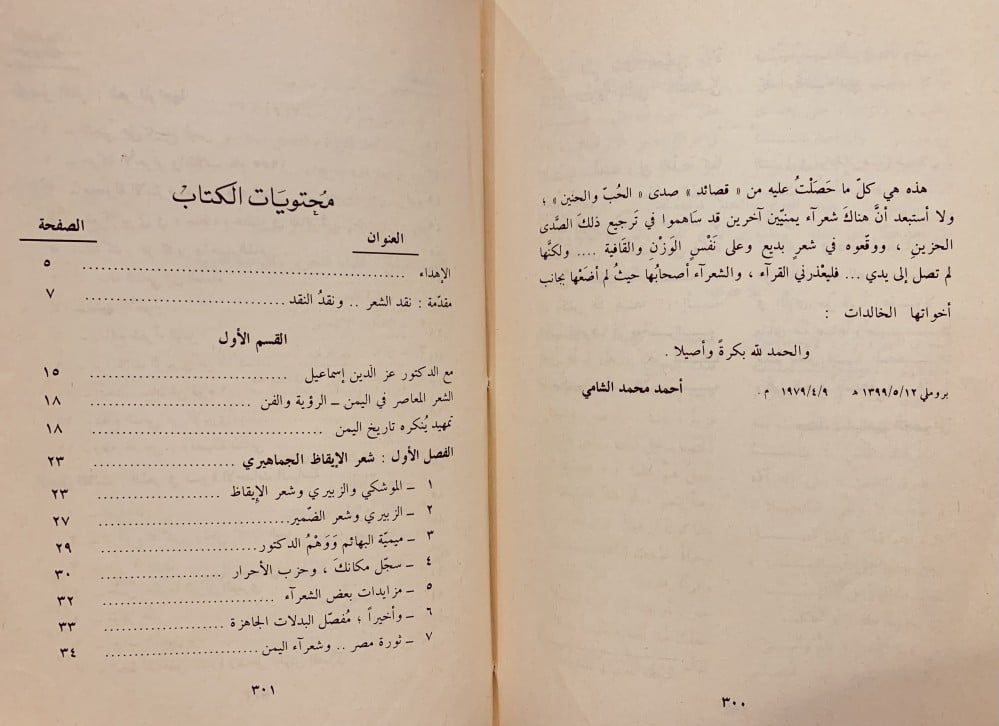 هذه هي كلّ ما حَصَلْتُ عليه من « قصائد » صدى « الحُبّ والحنين » ؛
ولا أستبعد أنَّ هناكَ شعرآء يمنيّين آخرين قد سَاهموا في تَرجيع ذلكَ الصَّدى
الحزينِ ، ووقّعوه في شعرٍ بديع وعلى نَفْسِ الوَزْنِ والقَافية .... ولكنَّها
لم تصل إلى يدي ... فليعْذرني القرآء ، والشعرآء أصحابُها حيثُ لم أضَعْها بجانب
أخواتها الخالدات :
والحمد للّه بكرةً وأصيلا .
بروملي ١٣٩٩/٥/١٢ هـ ١٩٧٩/٤/٩ م . أحمد محمد الشامي
٣٠٠
مُحتويَات الكتابْ
العنوان الصفحة
الإهداء ........ ٥
مقدّمة : نقد الشعر .. ونقدُ النقد ........ ٧
القسم الأول
مع الدكتور عز الدين إسماعيل ........ ١٥
الشعر المعاصر في اليمن ــ الرؤية والفن ........ ١٨
تمهيد يُنكره تاريخ اليمن ........ ١٨
الفصل الأول : شعر الإيقاظ الجماهيري ........ ٢٣
١ ــ الموشكي والزبيري وشعر الإيقاظ ........ ٢٣
٢ ــ الزبيري وشعر الضّمير ........ ٢٧
٣ ــ ميميّة البهائم وَوَهْمُ الدكتور ........ ٢٩
٤ ــ سجّل مكانكَ ، وحزب الأحرار ........ ٣٠
٥ ــ مزايدات بعض الشعرآء ........ ٣٢
٦ ــ وأخيراً ؛ مُفصّل البدلات الجاهزة ........ ٣٣
٧ ــ ثورة مصر .. وشعرآء اليمن ........ ٣٤
٣٠١